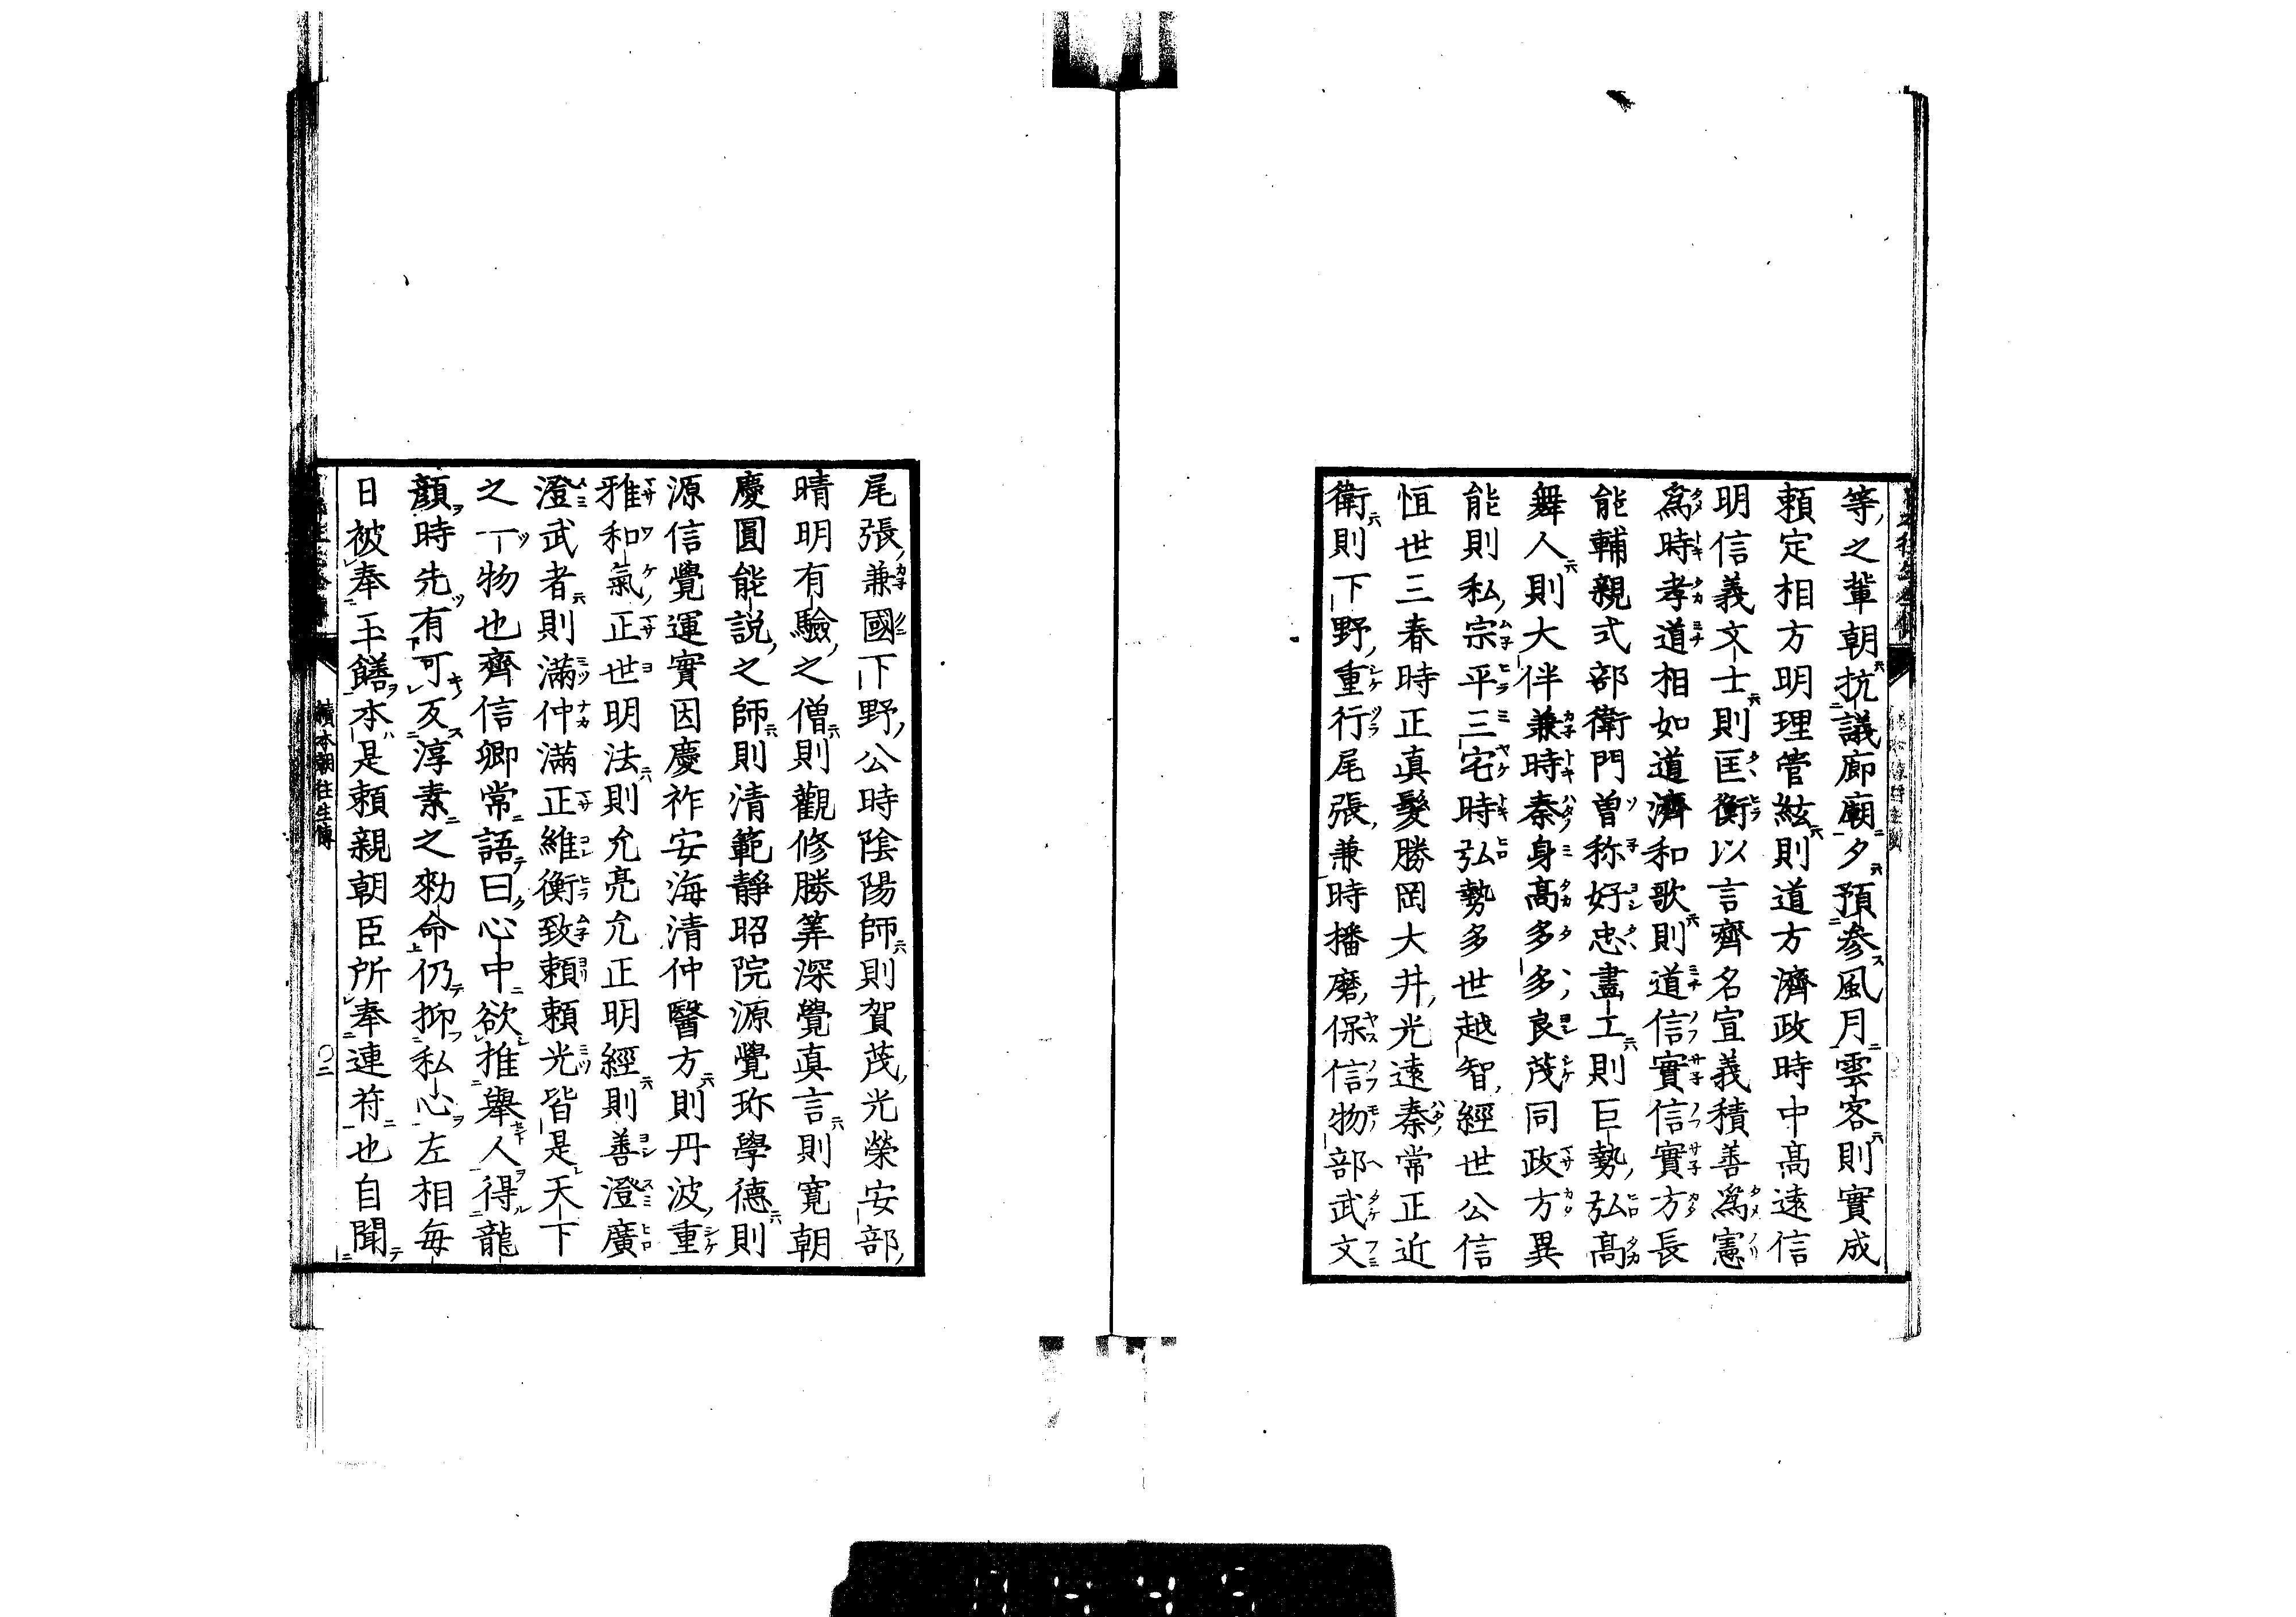 等之輩朝抗議廊廟夕預參風月雲客則實成
頼定相方明理管絃則道方濟政時中高遠信
明信義文士則匡衡以言齊名宣義積善爲憲
爲時孝道相如道濟和歌則道信實信實方長
能輔親式部衛門曽称好忠畫工則巨勢弘高
舞人則大伴兼時秦身高多多良茂同政方異
能則私宗平三宅時弘勢多世越智經世公信
恒世三春時正真髮勝岡大井光遠秦常正近
衛則下野重行尾張兼時播磨保信物部武文
尾張兼國下野公時陰陽師則賀茂光榮安部
晴明有驗之僧則觀修勝筭深覺真言則寛朝
慶圓能説之師則清範靜昭院源覺珎學德則
源信覺運實因慶祚安海清仲醫方則丹波重
雅和氣正世明法則允亮允正明經則善澄廣
澄武者則滿仲滿正維衡致頼頼光皆是天下
之一物也齊信卿常語曰心中欲推舉人得龍
顔時先有可反淳素之勅命仍抑私心左相毎
日被奉王饍本是頼親朝臣所奉連苻也自聞
續本朝往生傳 〇二